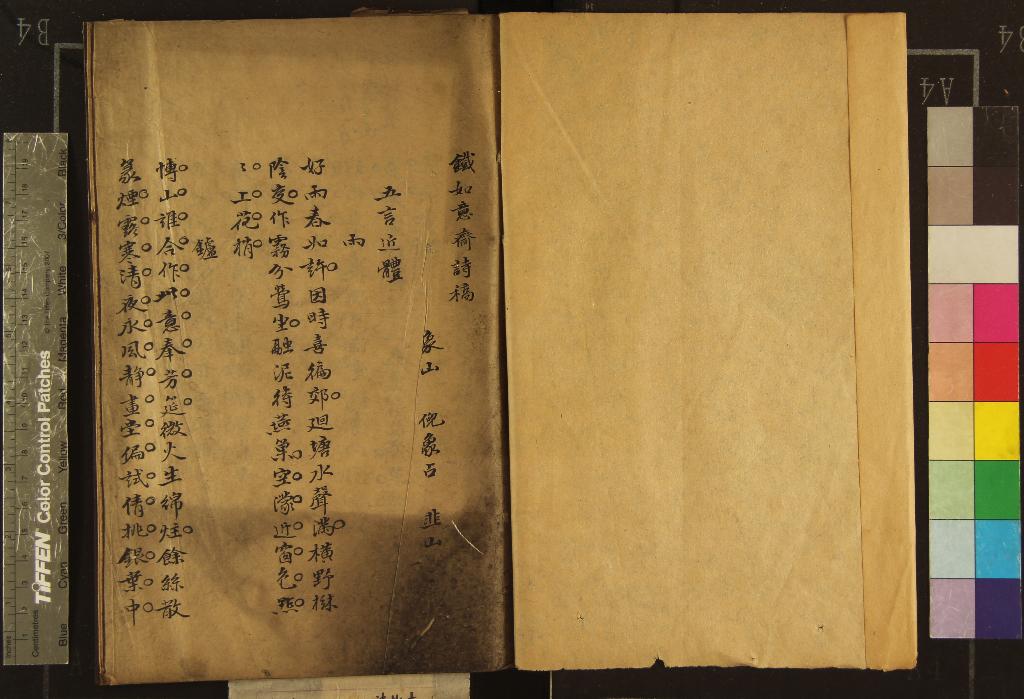 鐵如意齋詩稿
象山 倪象占 韭山
五言近體
雨
好雨春如許因時喜徧郊廻塘水聲滿橫野樹
陰交作霧分鶯坐融泥待燕巢空濛近窗色㸃
〻工花梢
鑪
博山誰合作此意奉芳筵微火生綿炷餘絲散
篆煙霧寒清夜永風靜畫堂偏試倩挑銀葉中
B4
A4
TIFFEN Color Control Patches
Blue Cyan Green Yellow Red Magenta White 3/Color Black
Inches
Centimetres